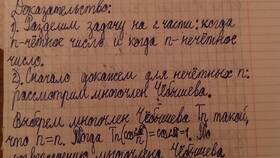 Доказательство:
1. Разделим задачу на 2 части: когда
n-чётное число и когда n-нечётное
число.
2. Сначала докажем для нечётных n:
рассмотрим многочлен Чебышева.
Выберем многочлен Чебышева Tn такой,
что n=n. Тогда По
многочлена Чебышева